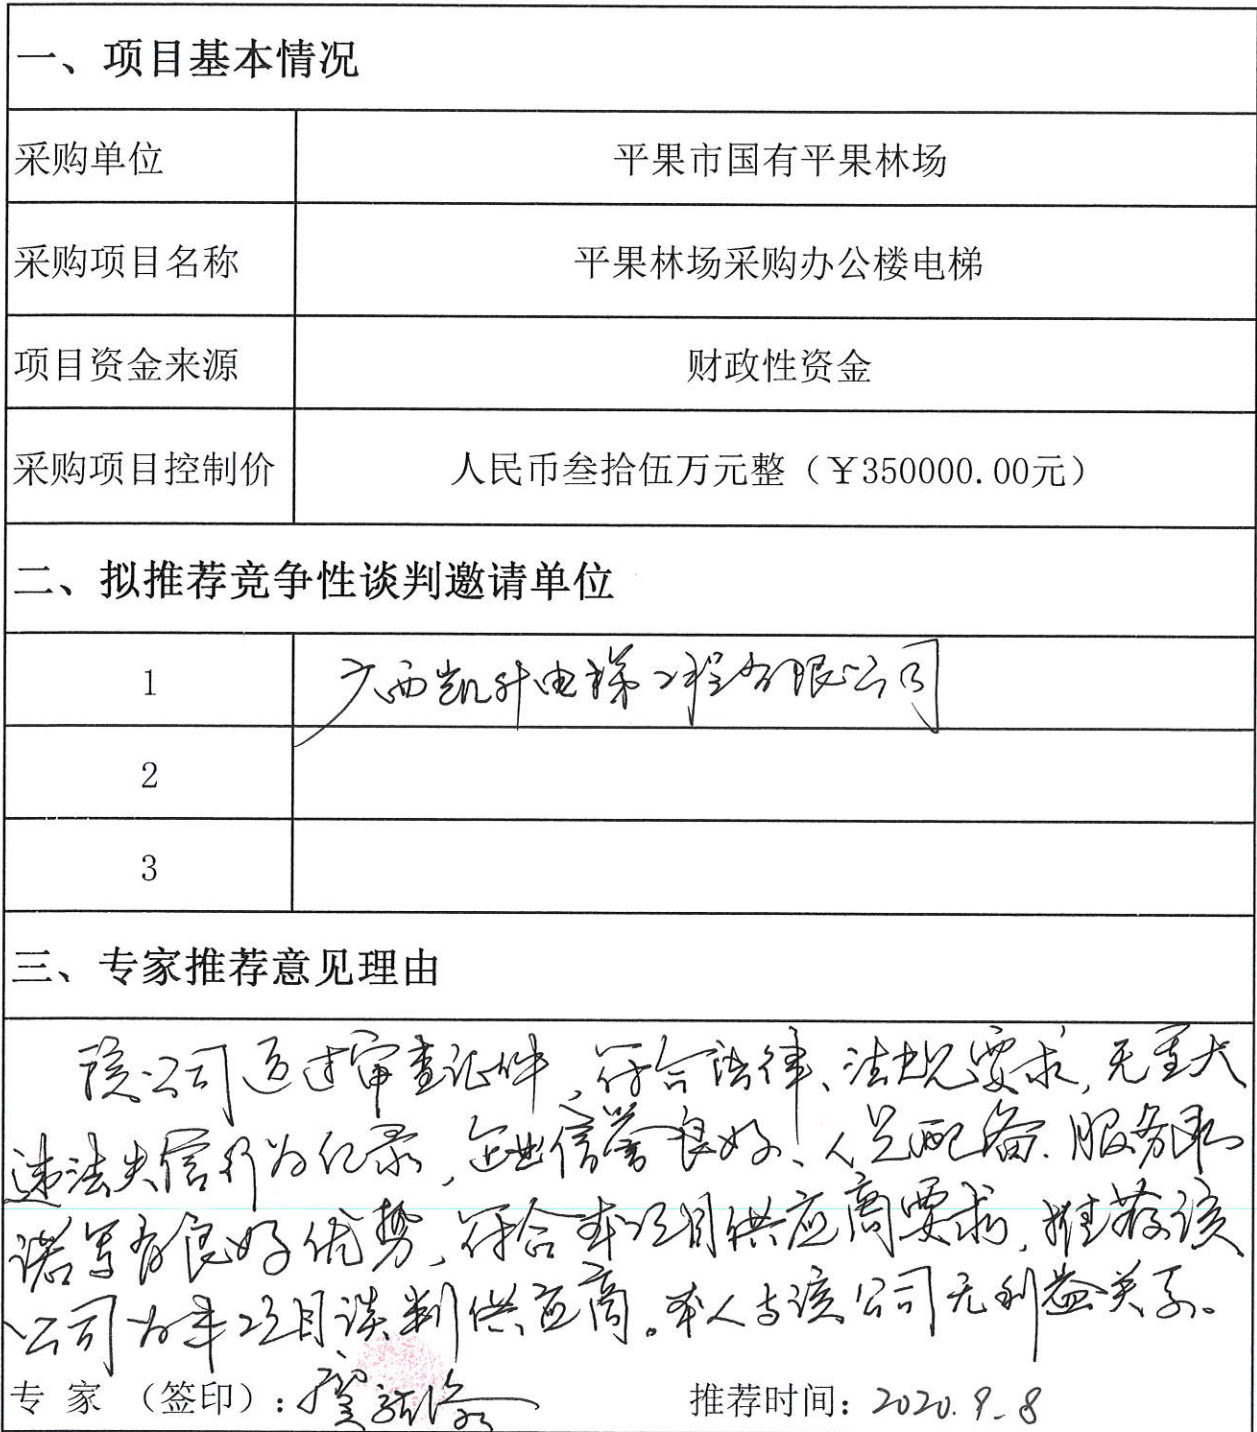 一、项目基本情况
采购单位 平果市国有平果林场
采购项目名称 平果林场采购办公楼电梯
项目资金来源 财政性资金
采购项目控制价 人民币叁拾伍万元整（￥350000.00元）
二、拟推荐竞争性谈判邀请单位
1 广西凯升电梯工程有限公司
2
3
三、专家推荐意见理由
该公司通过审查证件，符合法律、法规要求，无重大
违法失信行为纪录，企业信誉良好、人员配备、服务承
诺等有良好优势，符合本项目供应商要求，推荐该
公司为本项目谈判供应商。本人与该公司无利益关系。
专 家 （签印）： 推荐时间：2020.9.8